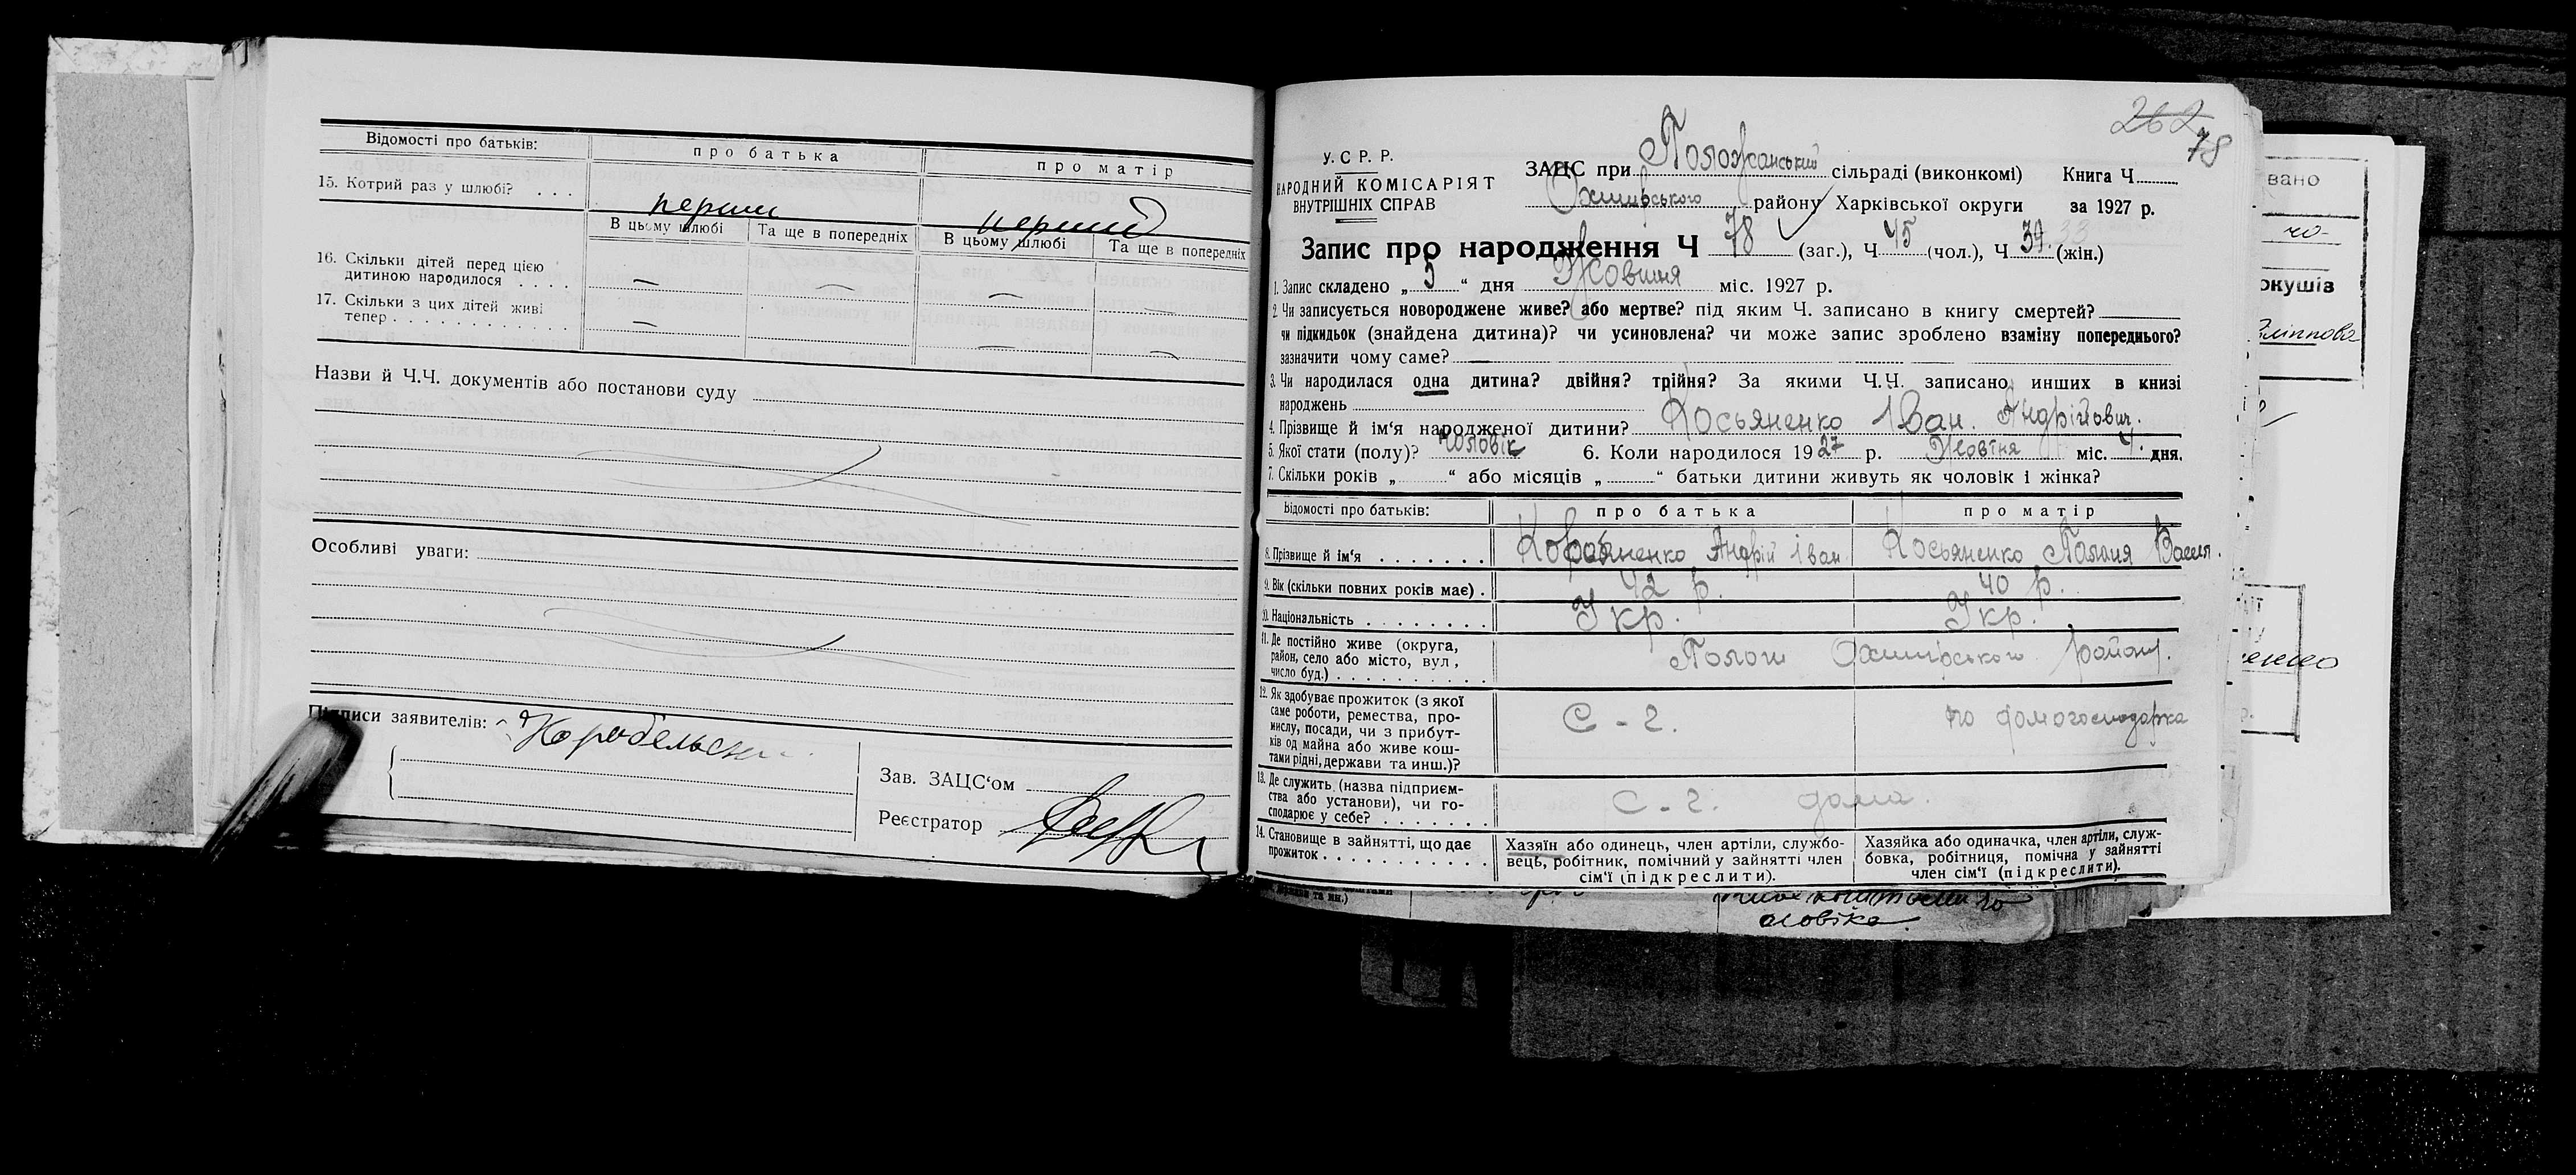 Відомості про батьків:
про батька
про матір
15. Котрий раз у шлюбі? . . .
перший
перший
В цьому шлюбі
Та ще в попередніх
В цьому шлюбі
Та ще в попередніх
16. Скільки дітей перед цією
дитиною народилося . . . .
— — — —
17. Скільки з цих дітей живі
тепер . . . . . . . . . . . .
— — —
Назви й Ч.Ч. документів або постанови суду
Особливі уваги:
Підписи заявителів:
Зав. ЗАЦС‘ом
Реєстратор
262
78
У.С Р. Р.
НАРОДНИЙ КОМІСАРІЯТ
ВНУТРІШНІХ СПРАВ
ЗАЦС при Положанський сільраді (виконкомі) Книга Ч.
Охтирського району Харківської округи за 1927 р.
Запис про народження Ч 78 (заг.), Ч 45 (чол.), Ч (жін.)
1. Запис складено „ 5 “ дня Жовтня міс. 1927 р.
2. Чи записується новороджене живе? або мертве? під яким Ч. записано в книгу смертей?
чи підкидьок (знайдена дитина)? чи усиновлена? чи може запис зроблено взаміну попереднього?
зазначити чому саме? —
3. Чи народилася одна дитина? двійня? трійня? За якими Ч.Ч. записано инших в книзі
народжень
4. Прізвище й ім‘я народженої дитини? Косьяненко Іван Андрійович.
5. Якої стати (полу)? чоловік 6. Коли народилося 1927 р. Жовтня міс. 4. дня.
7. Скільки років „ “ або місяців „ “ батьки дитини живуть як чоловік і жінка?
Відомості про батьків:
про батька
про матір
8. Прізвище й ім‘я . . . . . . .
Андрій Іван
Косьяненко
9. Вік (скільки повних років має) .
42 р.
40 р.
10. Національність . . . . . . . .
Укр.
Укр.
11. Де постійно живе (округа,
район, село або місто, вул,
число буд.) . . . . . . . . . .
Пологи Охтирського району.
12. Як здобуває прожиток (з якої
саме роботи, ремества, про-
мислу, посади, чи з прибут-
ків од майна або живе кош-
тами рідні, держави та инш.)?
С - г.
по домогосподарка
13. Де служить (назва підприєм-
ства або установи), чи го-
сподарює у себе? . . . . . . .
С - г. дома.
14. Становище в зайнятті, що дає
прожиток . . . . . . . . . . .
Хазяїн або одинець, член артіли, службо-
вець, робітник, помічний у зайнятті член
сім‘ї (підкреслити).
Хазяйка або одиначка, член артіли, служ-
бовка, робітниця, помічна у зайнятті
член сім‘ї (підкреслити).
вано
окушів